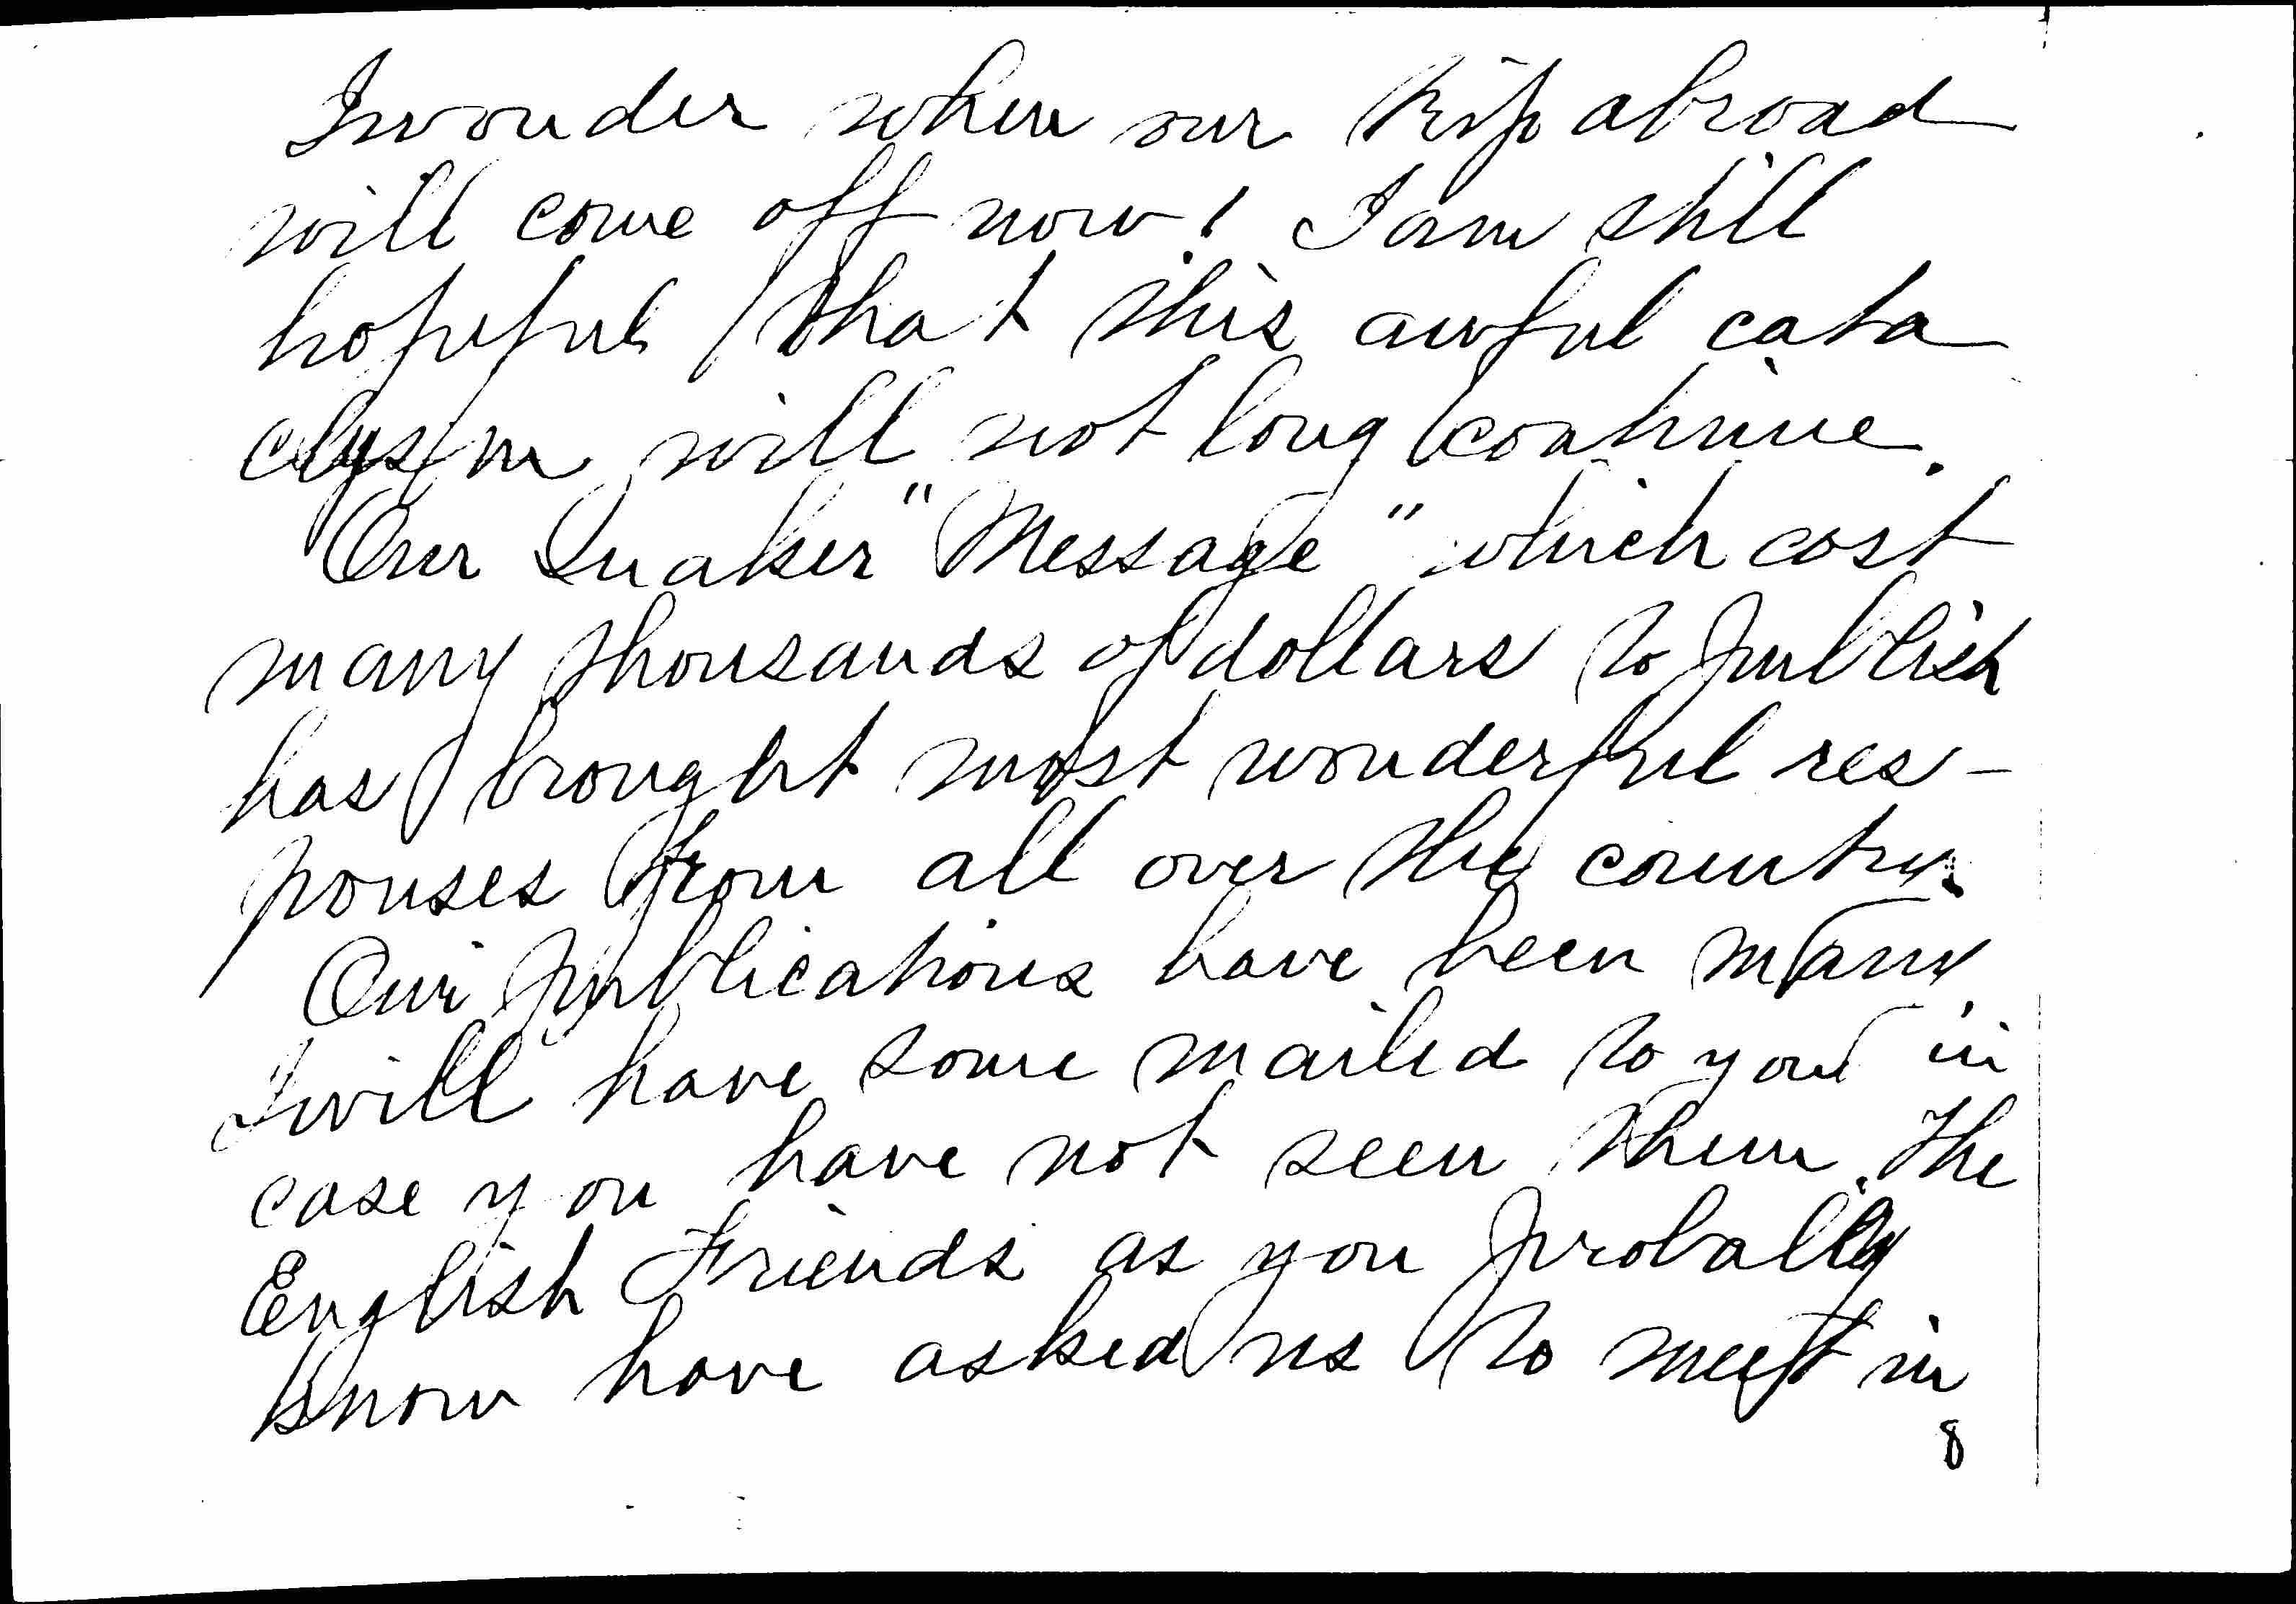 I wonder when our trip abroad
will come off now! I am still
hopeful that this awful cata
clysm will not long continue.
Our Quaker "Message" which cost
many thousands of dollars to publish
has brought most wonderful res-
ponses from all over the country.
Our publications have been many.
I will have some mailed to you in
case you have not seen them. The
English Friends as you probally
know have asked us to meet in
8